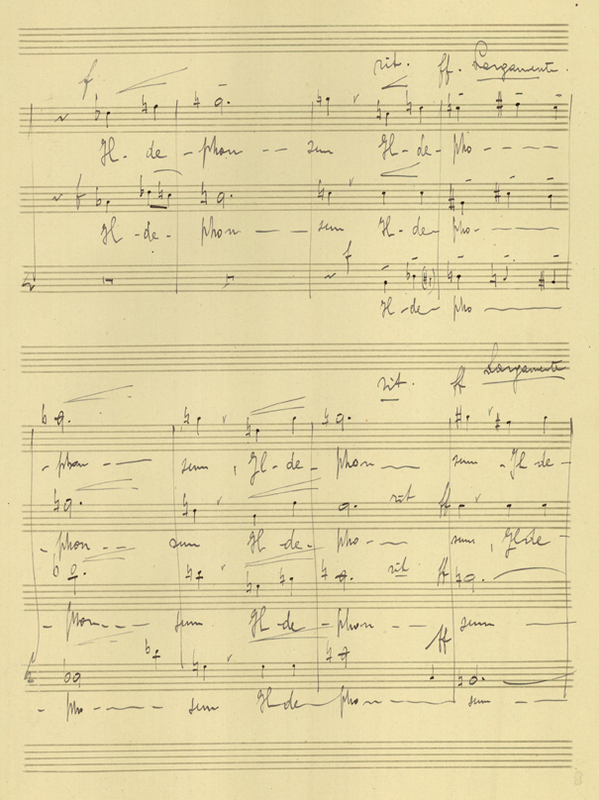 f rit. ff. Largamente.
Il - de - phon - - sum Il - de - pho - - - -
f
Il - de - phon - - - sum Il - de - pho - - - - -
f
Il - de - pho —
rit. ff Largamente
- phon - - - sum, Il - de - phon - - sum - Il - de -
rit ff
- phon - - - sum Il - de - pho - - sum, Il de -
rit ff
- phon - - - sum Il - de - phon - - sum —
ff
- pho - - - - sum Il de - pho - - - - sum - - -